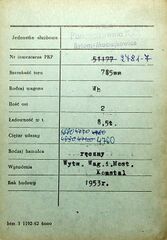 Jednostka służbowa
Nr inwentarza PKP 51177 2481-7
Szerokość toru 785mm
Rodzaj wagonu Wb
Ilość osi 2
Ładowność w t. 8,5t.
Ciężar własny 4760
Rodzaj hamulca ręczny
Wytwórnia Wytw. Wag. i Most. Konstal
Rok budowy 1953r.